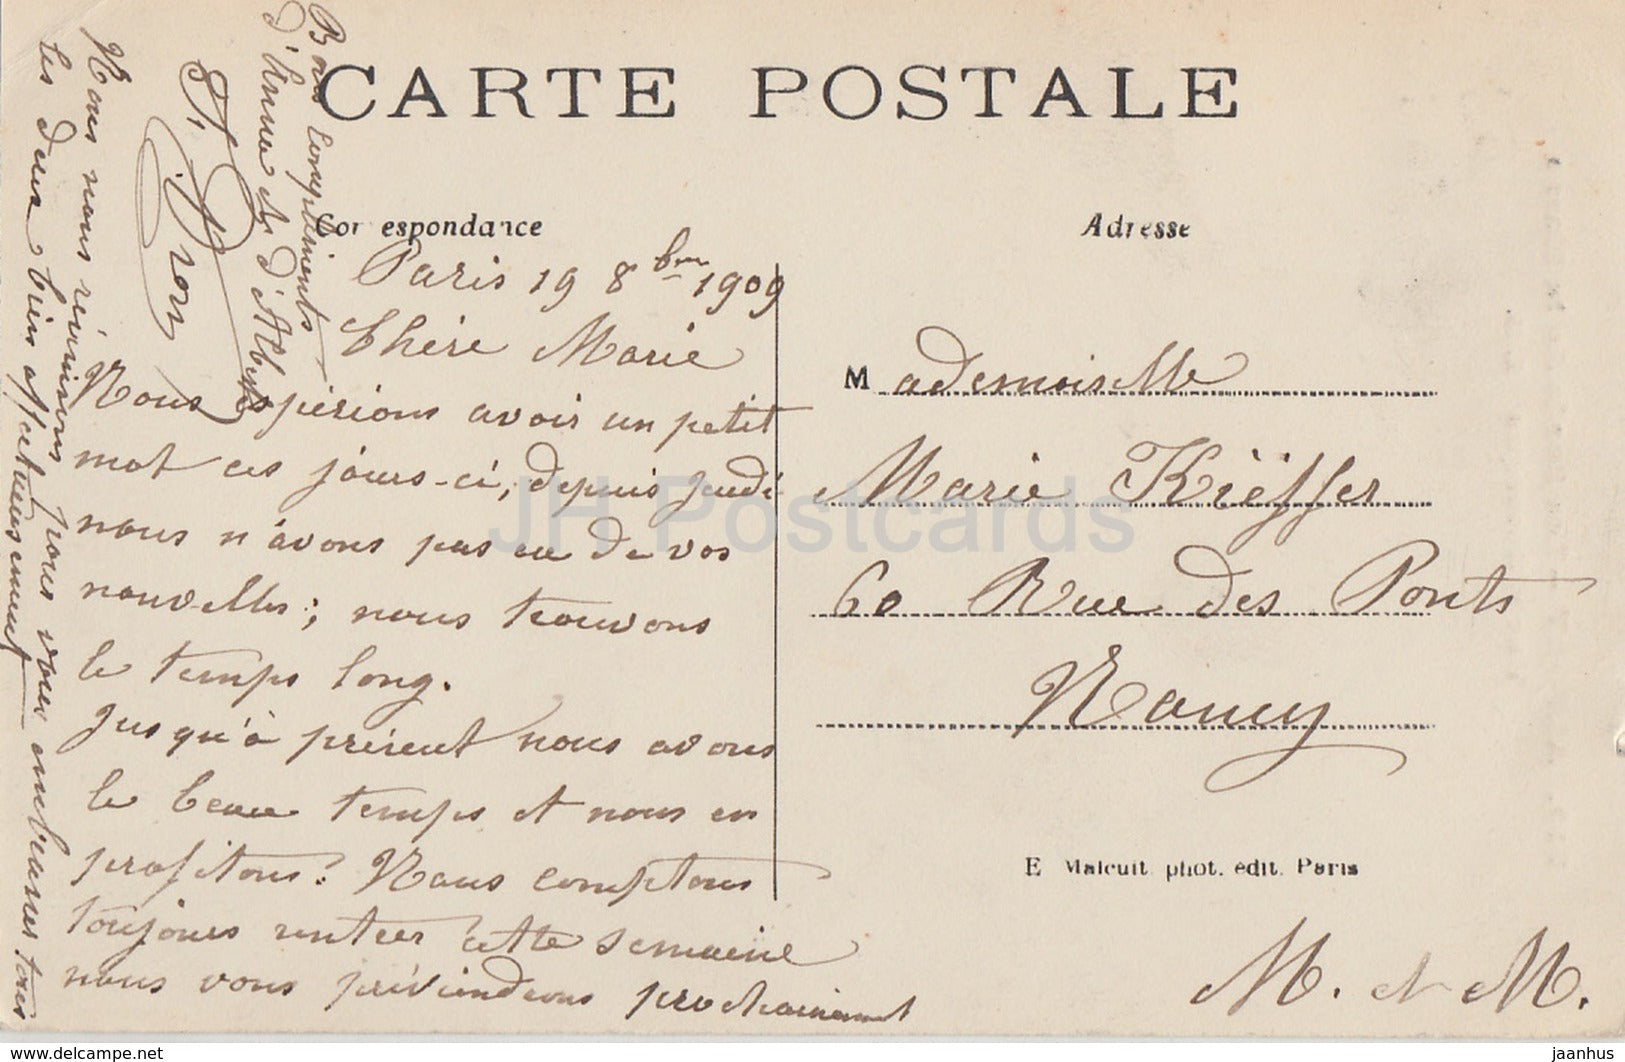 CARTE POSTALE
Correspondance
Adresse
Paris 19 8bre 1909
Chère Marie
Nous espérions avoir un petit
mot ces jours-ci, depuis jeudi
nous n'avons pas eu de vos
nouvelles; nous trouvons
le temps long.
Jusqu'à présent nous avons
le beau temps et nous en
profitons! Nous comptons
toujours rentrer cette semaine
nous vous préviendrons prochainement
Nous nous réunissons pour vous embrasser tous
les deux bien affectueusement
Bons Compliments
d'Anna et d'Albert
Mademoiselle
Marie Kieffer
60 Rue des Ponts
Nancy
E Malcuit phot. edit. Paris
M. et M.
JH Postcards
www.delcampe.net
jaanhus